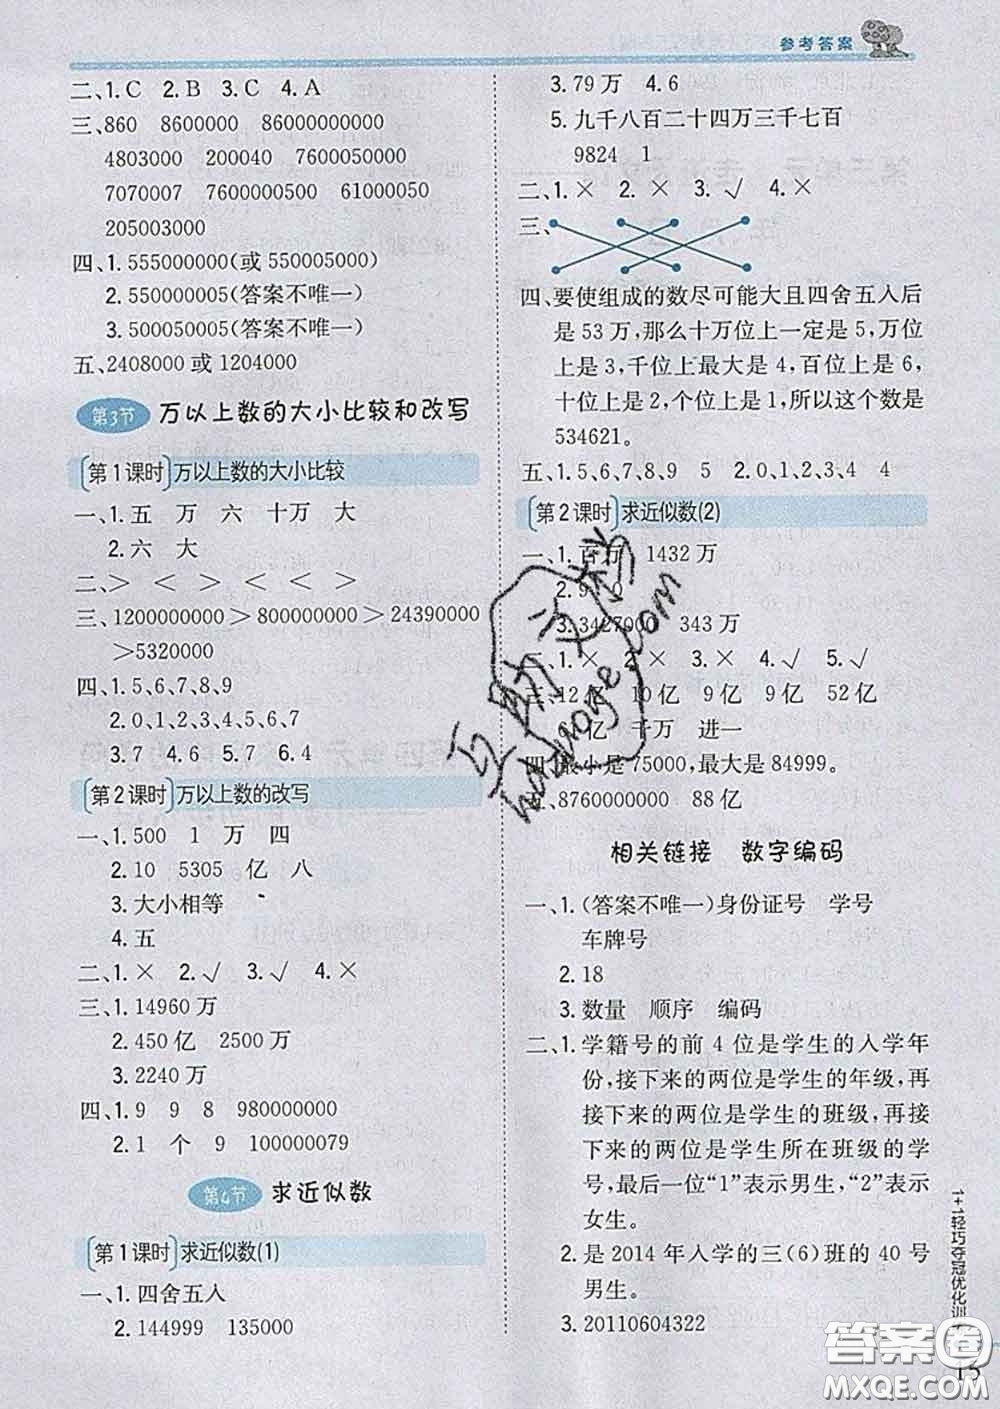 参考答案
二、1. C 2. B 3. C 4. A
三、860 8600000 86000000000
4803000 200040 7600050000
7070007 7600000500 61000050
205003000
四、1. 555000000(或 550005000)
2. 550000005(答案不唯一)
3. 500050005(答案不唯一)
五、2408000 或 1204000
第3节 万以上数的大小比较和改写
第1课时 万以上数的大小比较
一、1. 五 万 六 十万 大
2. 六 大
二、> < > < < <
三、1200000000>800000000>24390000
>5320000
四、1. 5、6、7、8、9
2. 0、1、2、3、4、5、6、7
3. 7 4. 6 5. 7 6. 4
第2课时 万以上数的改写
一、1. 500 1 万 四
2. 10 5305 亿 八
3. 大小相等
4. 五
二、1. × 2. √ 3. √ 4. ×
三、1. 14960 万
2. 450 亿 2500 万
3. 2240 万
四、1. 9 9 8 980000000
2. 1 个 9 100000079
第4节 求近似数
第1课时 求近似数(1)
一、1. 四舍五入
2. 144999 135000
3. 79 万 4. 6
5. 九千八百二十四万三千七百
9824 1
二、1. × 2. × 3. √ 4. ×
三、
四、要使组成的数尽可能大且四舍五入后
是 53 万,那么十万位上一定是 5,万位
上是 3,千位上最大是 4,百位上是 6,
十位上是 2,个位上是 1,所以这个数是
534621。
五、1. 5、6、7、8、9 5 2. 0、1、2、3、4 4
第2课时 求近似数(2)
一、1. 百万 1432 万
2. 9 0
3. 3427000 343 万
二、1. × 2. × 3. × 4. √ 5. √
三、12 亿 10 亿 9 亿 9 亿 52 亿
亿 千万 进一
四、最小是 75000,最大是 84999。
五、8760000000 88 亿
相关链接 数字编码
一、1. (答案不唯一)身份证号 学号
车牌号
2. 18
3. 数量 顺序 编码
二、1. 学籍号的前 4 位是学生的入学年
份,接下来的两位是学生的年级,再
接下来的两位是学生的班级,再接
下来的两位是学生所在班级的学
号,最后一位“1”表示男生,“2”表示
女生。
2. 是 2014 年入学的三(6)班的 40 号
男生。
3. 20110604322
1+1轻巧夺冠优化训
15
互助文档
huzuoge.com
答案圈
MXQE.COM